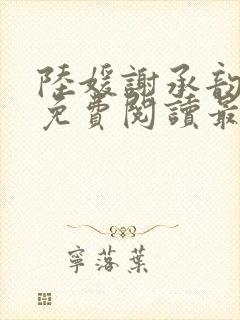 陸媛謝承韵
免費閱讀最
寧落葉